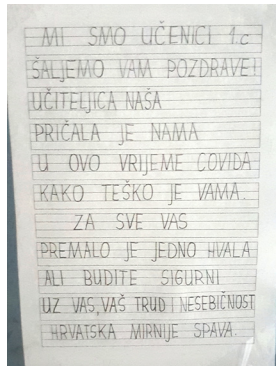 MI SMO UČENICI 1.c
ŠALJEMO VAM POZDRAVE!
UČITELJICA NAŠA
PRIČALA JE NAMA
U OVO VRIJEME COVIDA
KAKO TEŠKO JE VAMA.
ZA SVE VAS
PREMALO JE JEDNO HVALA
ALI BUDITE SIGURNI
UZ VAS, VAŠ TRUD I NESEBIČNOST
HRVATSKA MIRNIJE SPAVA.